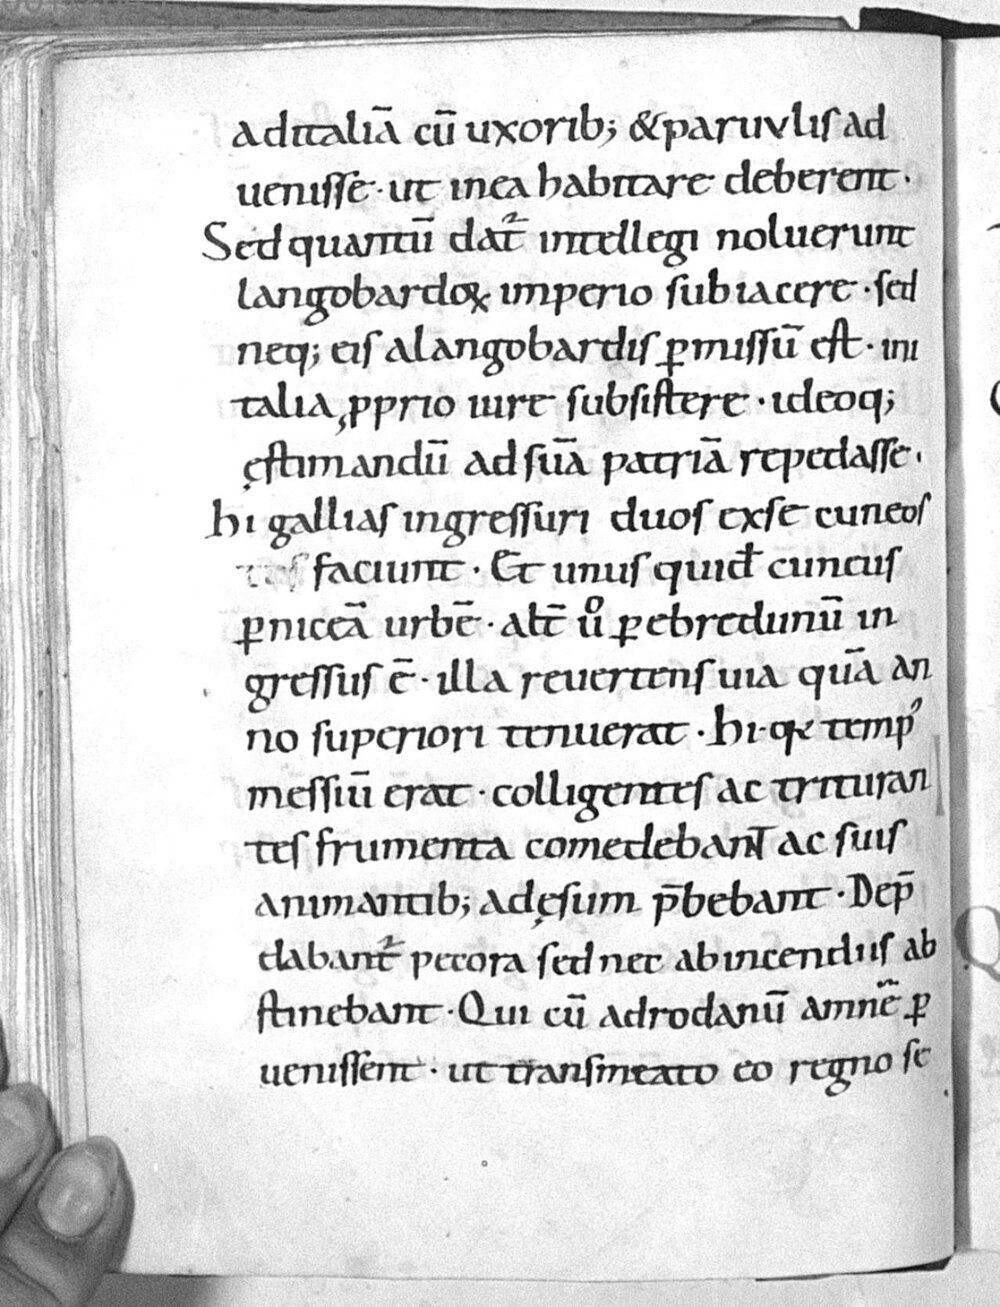 aditaliā cū uxorib; & paruulis ad
uenisse · ut inea habitare deberent ·
Sed quantū dat̄ intellegi noluerunt
langobardoꝝ imperio subiacere · sed
neq; eis alangobardis ꝑmissū est · ini
talia ꝓprio iure subsistere · ideoq;
ęstimandū ad suā patriā repedasse ·
hi gallias ingressuri duos exse cuneos
faciunt · Et unus quid̄ cuneus
ꝑniceā urbē · alt̄ ůͦ ꝑebredunū in
gressus ē · illa reuertens uia quā an
no superiori tenuerat · hi · qꝛ temp᾽
messiū erat · colligentes ac trituran
tes frumenta comedebant ac suis
animantib; adęsum p̄bebant · Dep̄
dabant̄ pecora sed nec abincendiis ab
stinebant · Qui cū adrodanū amnē ꝑ
uenissent · ut transmeato eo regno se